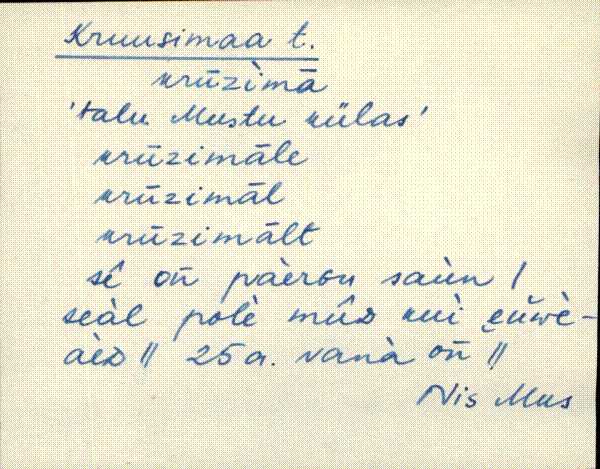 Kruusimaa t.
krūzìmā
'talu Mustu külas'
krūzimāle
krūzimāl
krūzimālt
sê on̄ pàerɢu saùn /
seàl polè mûᴅ kuì
àeᴅ // 25 a. vanà on̄ //
Nis Mus